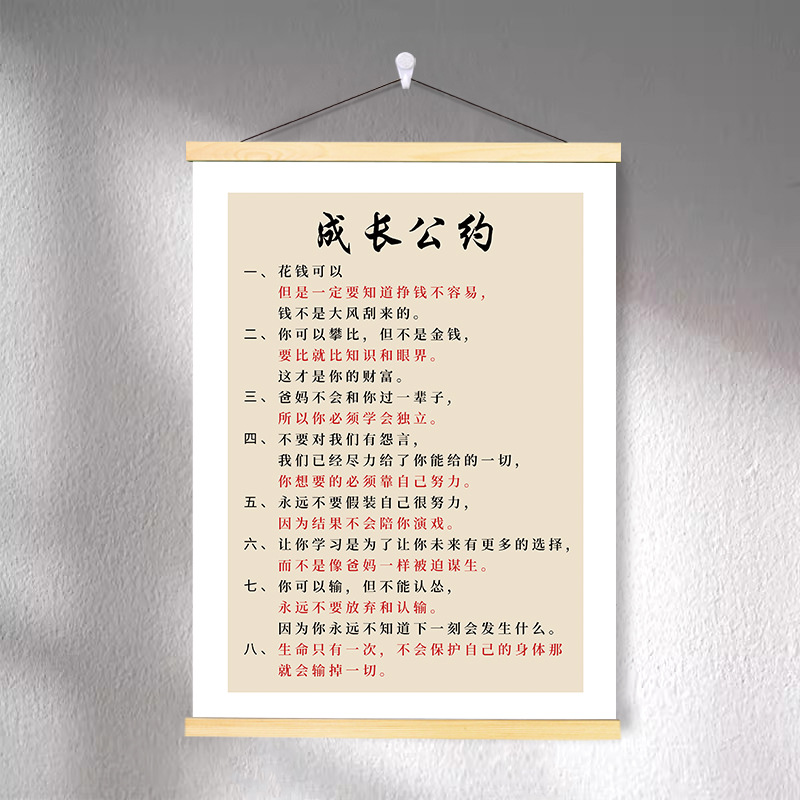 成长公约
一、花钱可以
但是一定要知道挣钱不容易，
钱不是大风刮来的。
二、你可以攀比，但不是金钱，
要比就比知识和眼界。
这才是你的财富。
三、爸妈不会和你过一辈子，
所以你必须学会独立。
四、不要对我们有怨言，
我们已经尽力给了你能给的一切，
你想要的必须靠自己努力。
五、永远不要假装自己很努力，
因为结果不会陪你演戏。
六、让你学习是为了让你未来有更多的选择，
而不是像爸妈一样被迫谋生。
七、你可以输，但不能认怂，
永远不要放弃和认输。
因为你永远不知道下一刻会发生什么。
八、生命只有一次，不会保护自己的身体那
就会输掉一切。